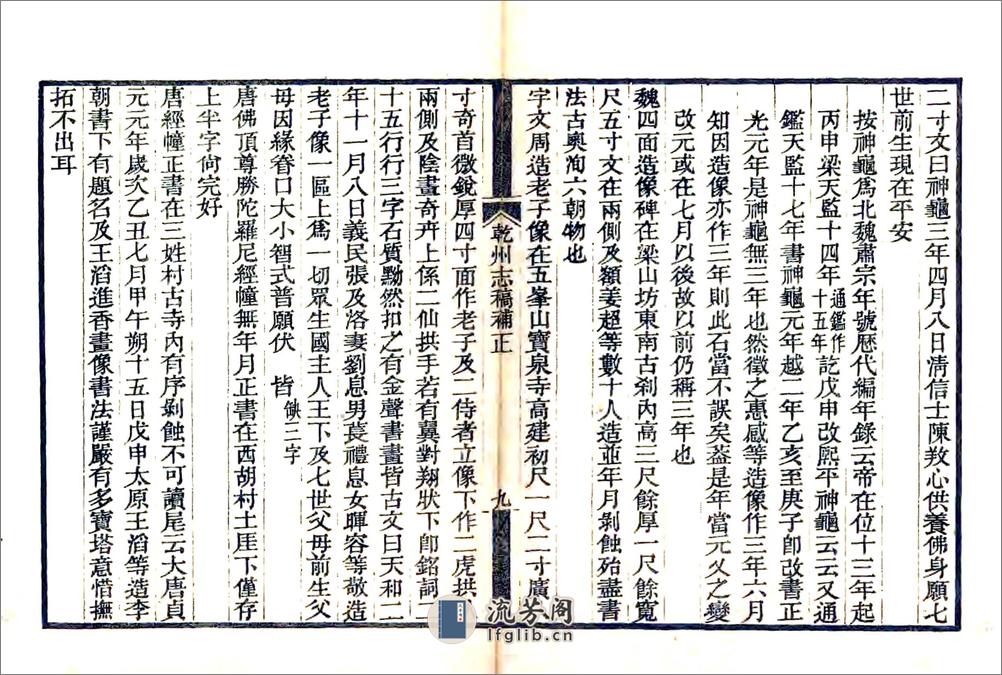 二寸文曰神龜三年四月八日淸信士陳敉心供養佛身願七
世前生現在平安
按神龜爲北魏肅宗年號歷代編年錄云帝在位十三年起
丙申梁天監十四年通鑑作十五年訖戊申改熙平神龜云云又通
鑑天監十七年書神龜元年越二年乙亥至庚子卽改書正
光元年是神龜無三年也然徵之惠感等造像作三年六月
知因造像亦作三年則此石當不誤矣葢是年當元乂之變
改元或在七月以後故以前仍稱三年也
魏四面造像碑在梁山坊東南古刹內高三尺餘厚一尺餘寬
尺五寸文在兩側及額姜超等數十人造並年月剝蝕殆盡書
法古奧洵六朝物也
宇文周造老子像在五峯山寶泉寺高建初尺一尺二寸廣
乾州志稿補正
九
寸奇首微銳厚四寸面作老子及二侍者立像下作二虎拱
兩側及陰畫奇卉上係二仙拱手若有翼對翔狀下卽銘詞二
十五行行三字石質黝然扣之有金聲書畫皆古文曰天和二
年十一月八日義民張及洛妻劉息男萇禮息女暉容等敬造
老子像一區上爲一切眾生國主人王下及七世父母前生父
母因緣眷口大小智式普願伏　皆缺三字
唐佛頂尊勝陀羅尼經幢無年月正書在西胡村土厓下僅存
上半字尚完好
唐經幢正書在三姓村古寺內有序剝蝕不可讀尾云大唐貞
元元年歲次乙丑七月甲午朔十五日戊申太原王滔等造李
朝書下有題名及王滔進香畫像書法謹嚴有多寶塔意惜撫
拓不出耳
流芳阁
lfglib.cn